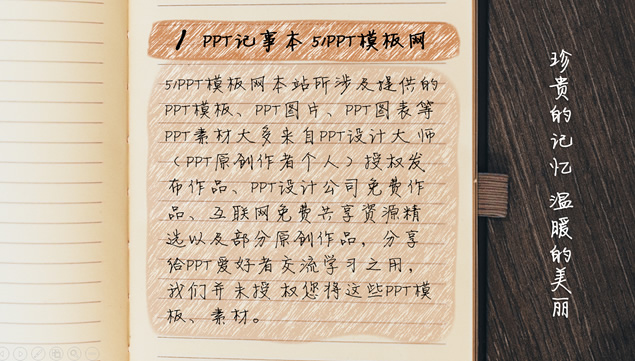 1 PPT记事本 51PPT模板网
51PPT模板网本站所涉及提供的
PPT模板、PPT图片、PPT图表等
PPT素材大多来自PPT设计大师
（PPT原创作者个人）授权发
布作品、PPT设计公司免费作
品、互联网免费共享资源精
选以及部分原创作品，分享
给PPT爱好者交流学习之用，
我们并未授权您将这些PPT模
板、素材。
珍贵的记忆 温暖的美丽